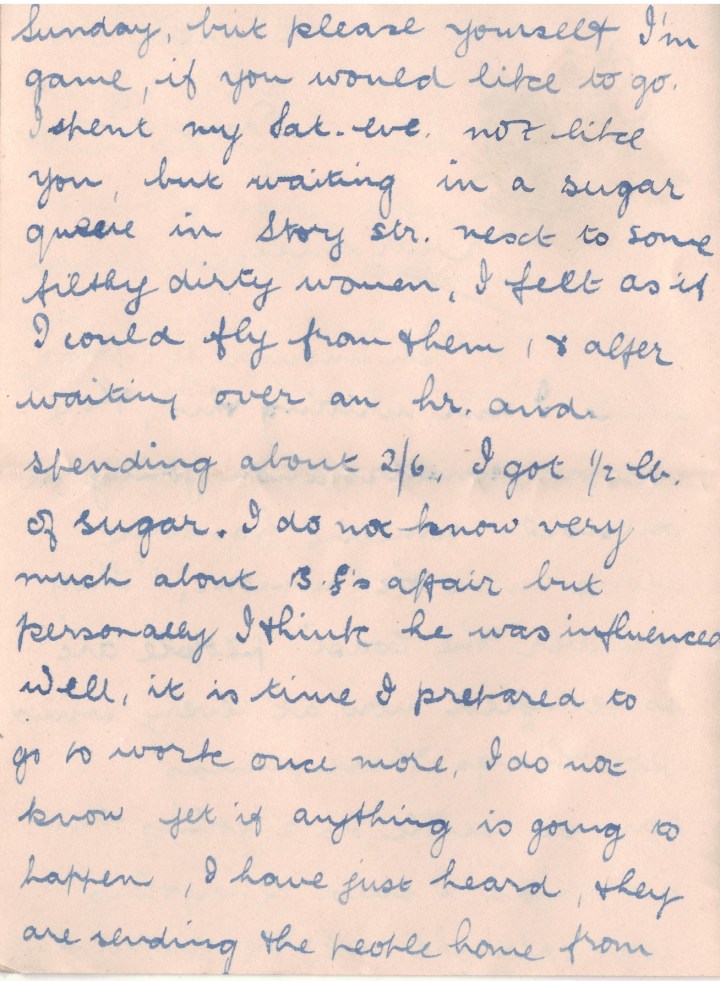 Sunday, but please yourself I'm
game, if you would like to go.
I spent my Sat. eve. not like
you, but waiting in a sugar
queue in Story str. next to some
filthy dirty women, I felt as if
I could fly from them, & after
waiting over an hr. and
spending about 2/6, I got 1/2 lb.
of sugar. I do not know very
much about B.F's affair but
personally I think he was influenced
Well, it is time I prepared to
go to work once more, I do not
know yet if anything is going to
happen, I have just heard, they
are sending the people home from